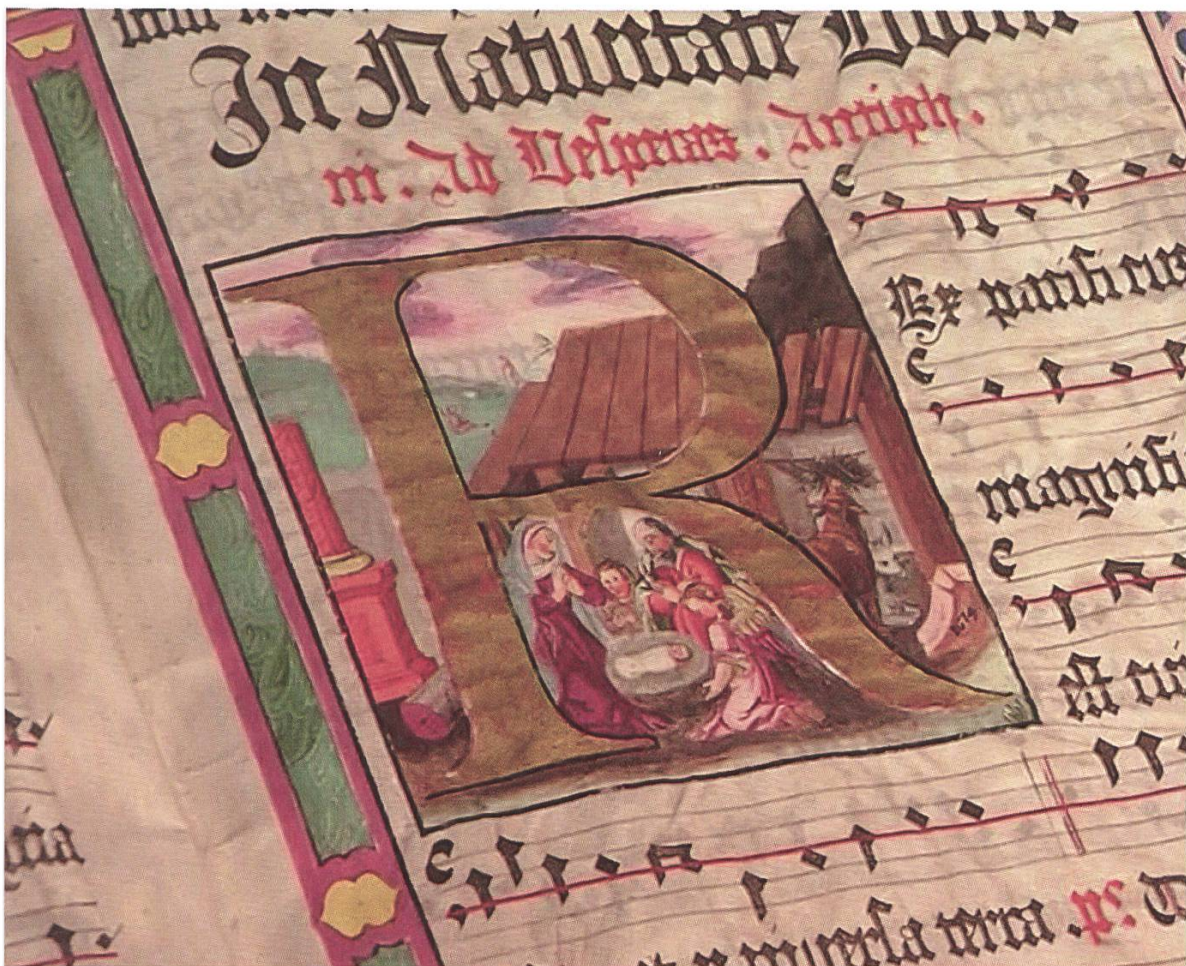 In Natiuitate Domi
ni. Ad Vesperas. Antiph.
REx pacificus
magnifi
est cui
uniuersa terra. ps.